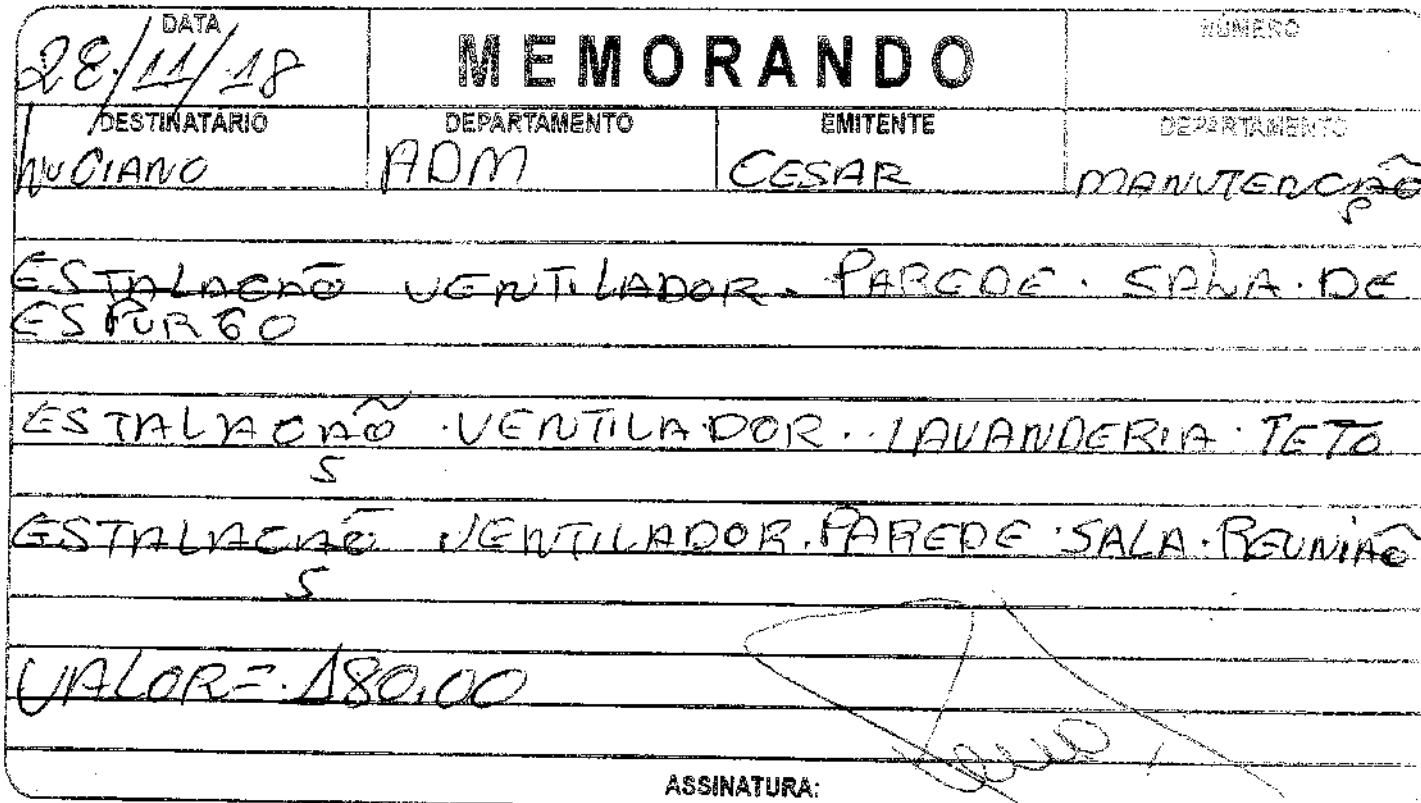 DATA
28/11/18
MEMORANDO
NÚMERO
DESTINATÁRIO
DEPARTAMENTO
EMITENTE
DEPARTAMENTO
LUCIANO
ADM
CESAR
MANUTENÇÃO
ESTALACÃO VENTILADOR. PAREDE. SALA. DE
ESPURGO
ESTALAÇÃO. VENTILADOR.. LAVANDERIA. TETO
ESTALAÇÃO VENTILADOR. PAREDE. SALA. REUNIÃO
VALOR=.180,00
ASSINATURA: